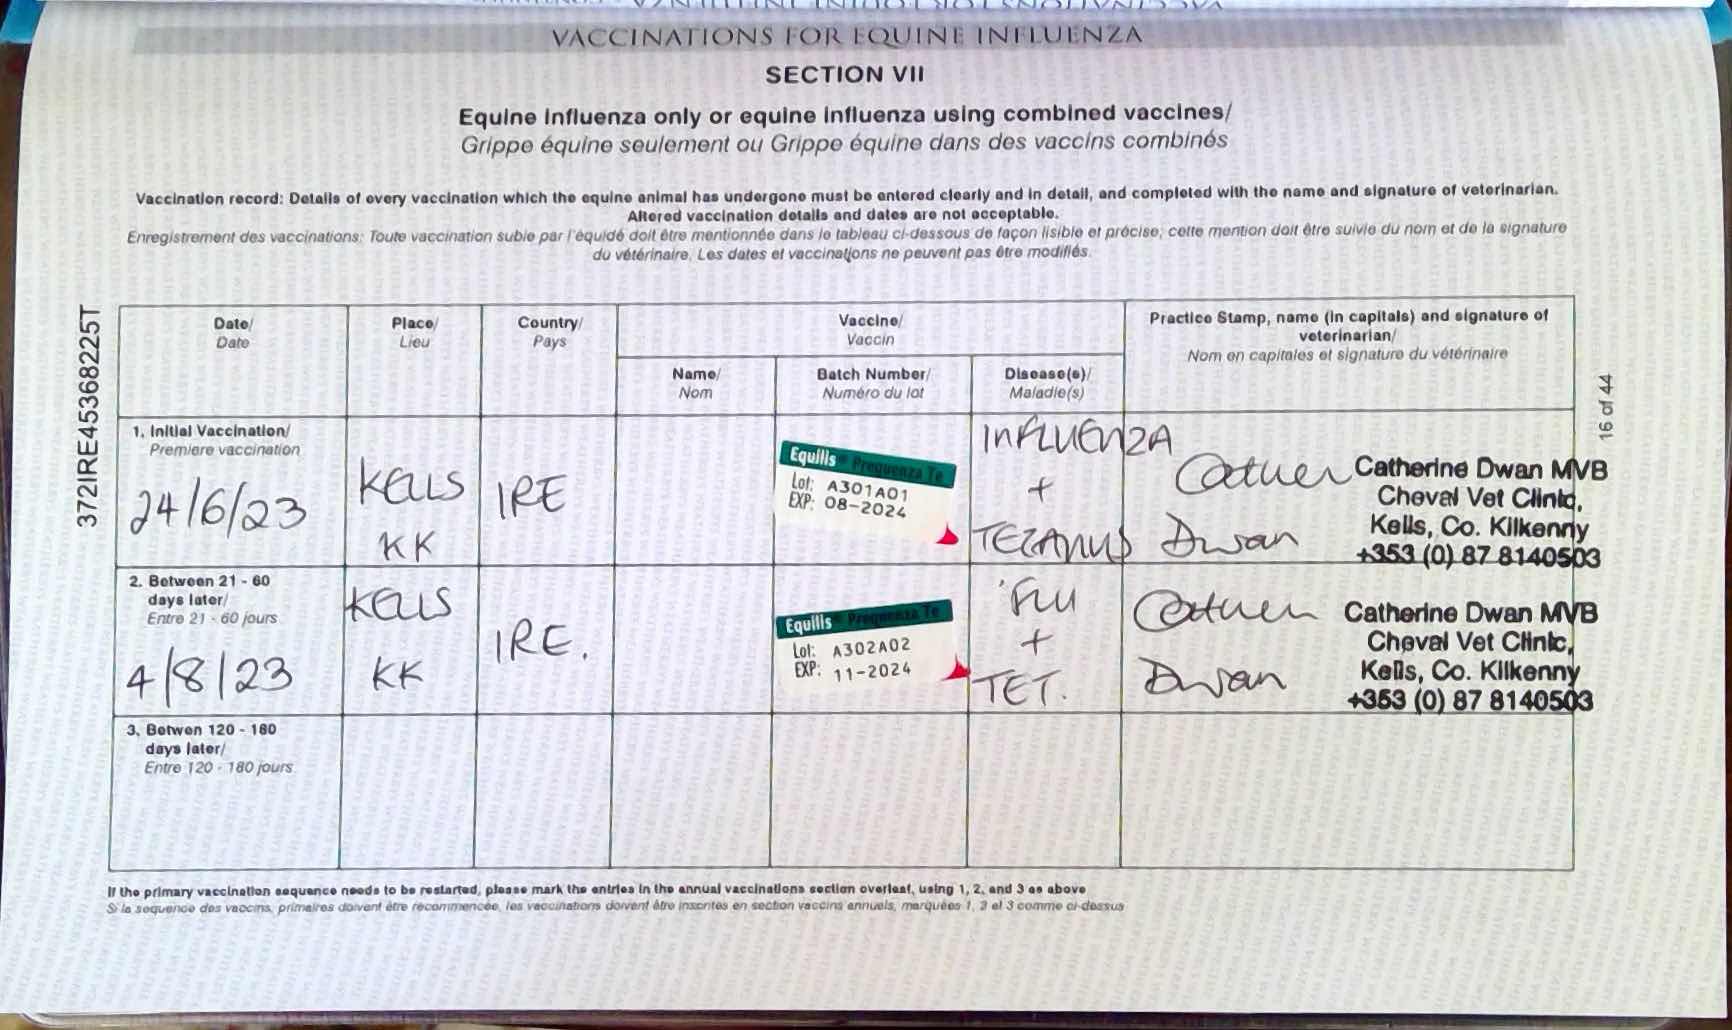 VACCINATIONS FOR EQUINE INFLUENZA
SECTION VII
Equine Influenza only or equine influenza using combined vaccines/
Grippe équine seulement ou Grippe équine dans des vaccins combinés
Vaccination record: Details of every vaccination which the equine animal has undergone must be entered clearly and in detail, and completed with the name and signature of veterinarian.
Altered vaccination details and dates are not acceptable.
Enregistrement des vaccinations: Toute vaccination subie par l'équidé doit être mentionnée dans le tableau ci-dessous de façon lisible et précise; cette mention doit être suivie du nom et de la signature
du vétérinaire. Les dates et vaccinations ne peuvent pas être modifiés.
372IRE45368225T
16 of 44
Date/
Date
Place/
Lieu
Country/
Pays
Vaccine/
Vaccin
Practice Stamp, name (in capitals) and signature of
veterinarian/
Nom en capitales et signature du vétérinaire
Name/
Nom
Batch Number/
Numéro du lot
Disease(s)/
Maladie(s)
1. Initial Vaccination/
Premiere vaccination
24/6/23
KELLS
KK
IRE
Equilis® Prequenza Te
Lot: A301A01
EXP: 08-2024
INFLUENZA
+
TEZANUS
Catherine Dwan MVB
Cheval Vet Clinic,
Kells, Co. Kilkenny
+353 (0) 87 8140503
Dwan
2. Between 21 - 60
days later/
Entre 21 - 60 jours
4/8/23
KELLS
KK
IRE.
Equilis® Prequenza Te
Lot: A302A02
EXP: 11-2024
'FLU
+
TET.
Catherine Dwan MVB
Cheval Vet Clinic,
Kells, Co. Kilkenny
+353 (0) 87 8140503
Dwan
3. Betwen 120 - 180
days later/
Entre 120 - 180 jours
If the primary vaccination sequence needs to be restarted, please mark the entries in the annual vaccinations section overleaf, using 1, 2, and 3 as above
Si la sequence des vaccins, primaires doivent être recommencée, les vaccinations doivent être inscrites en section vaccins annuels, marquées 1, 2 et 3 comme ci-dessus